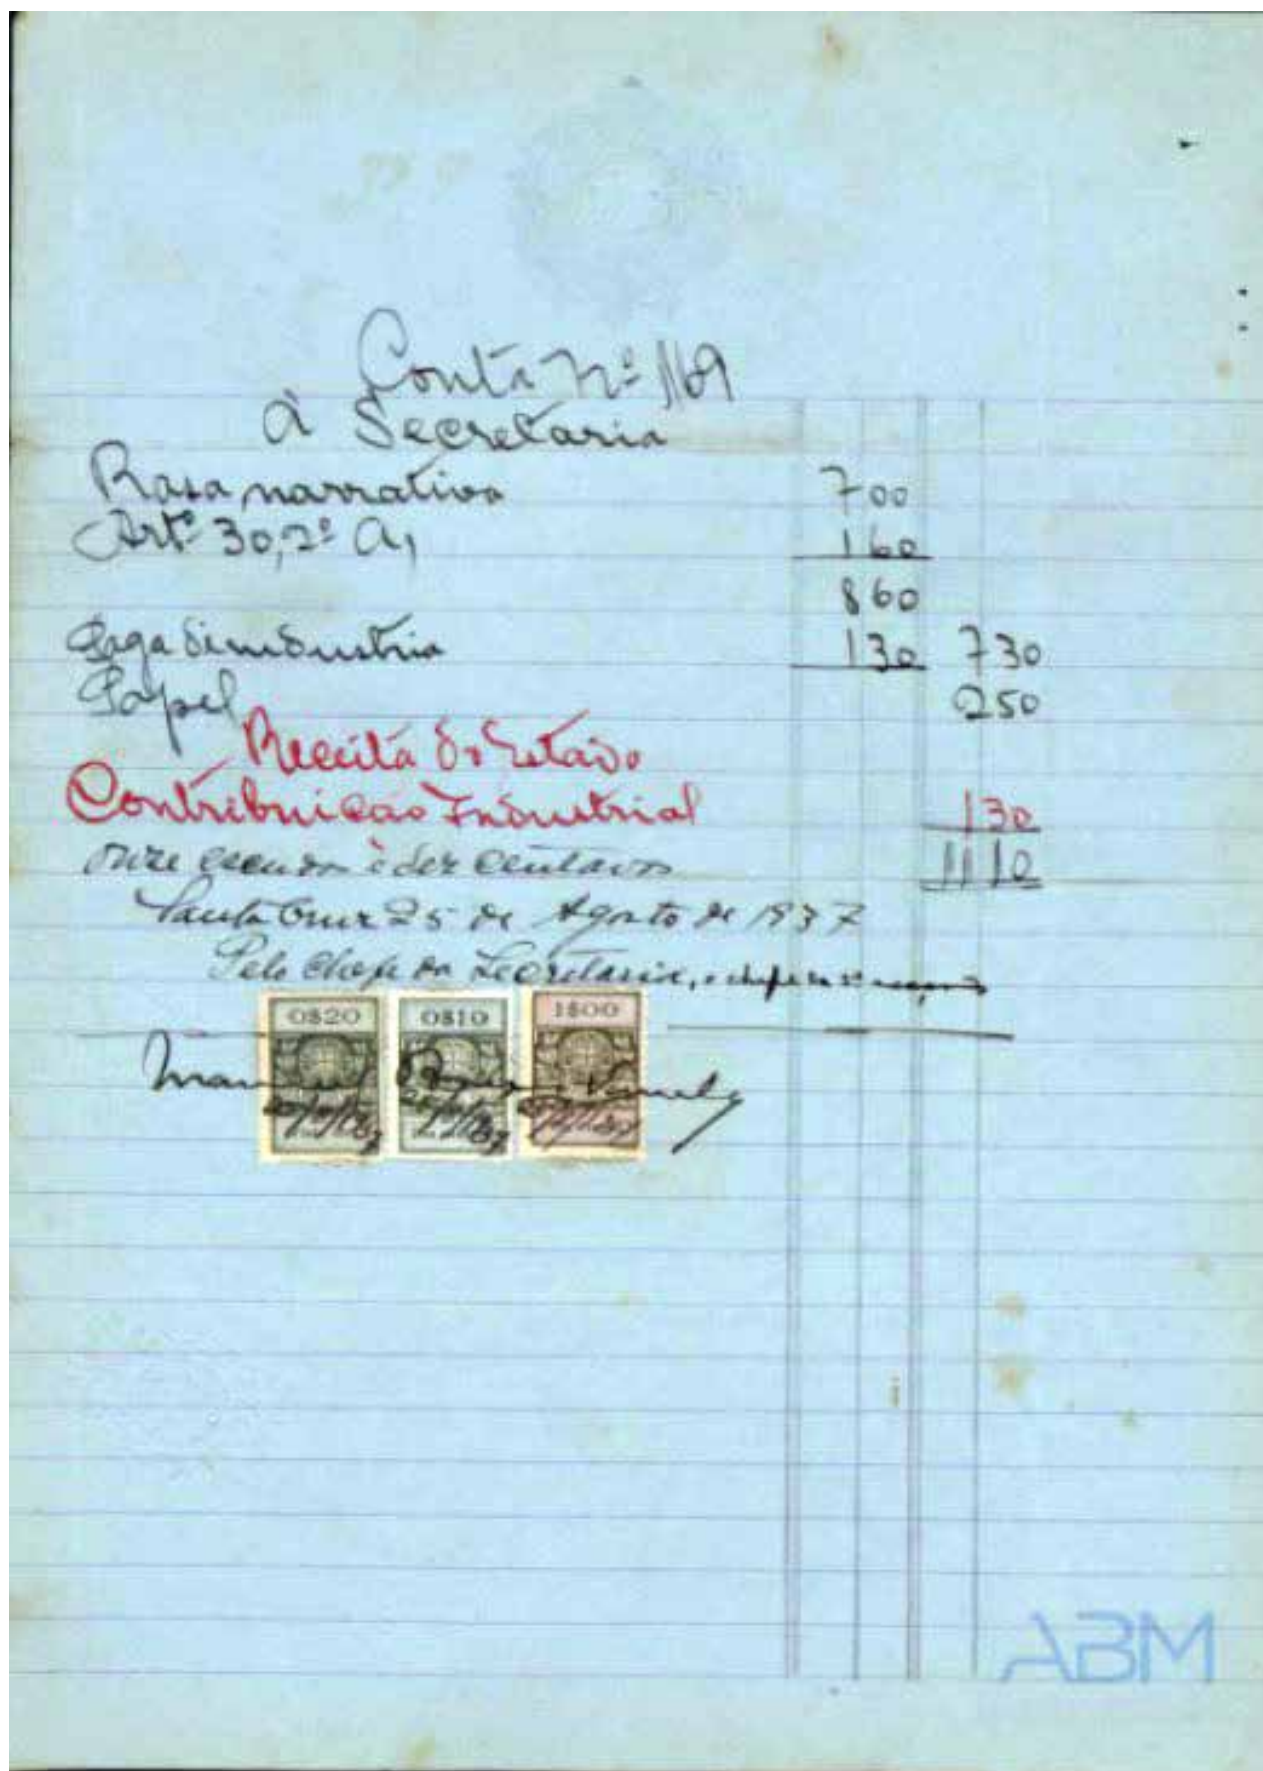 Conta nº 1169
À Secretaria
Rasa narrativa 700
Artº 30, 2º A, 160
860
Paga de industria 130 730
Papel 250
Receita do Estado
Contribuição Industrial 130
onze escudos e dez centavos 1110
Santa Cruz 25 de Agosto de 1937
Pelo Chefe da Secretaria, o chefe da secção
0$20 0$10 1$00
Manuel
ABM